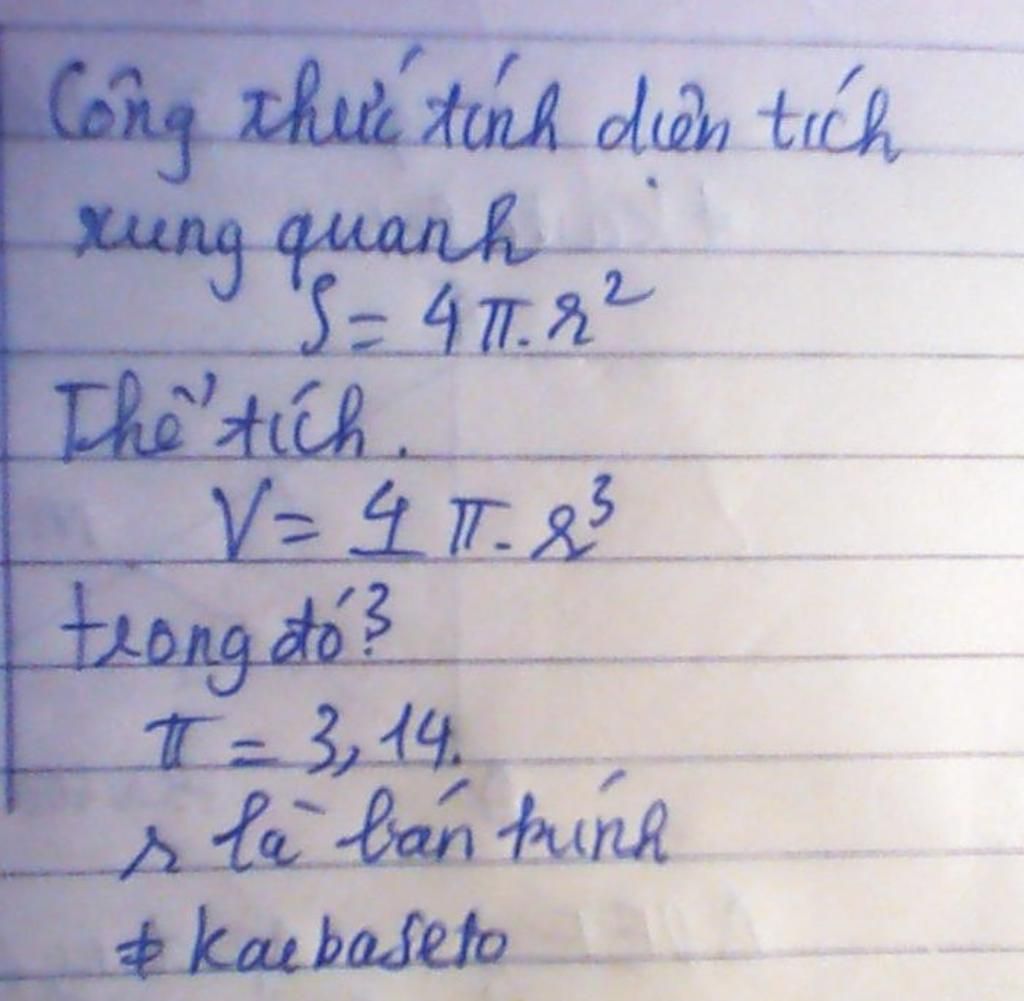 Công thức tính diện tích
xung quanh
S = 4π.r²
Thể tích.
V = 4 π.r³
trong đó?
π = 3,14.
r là bán kính
* Kaebaseto